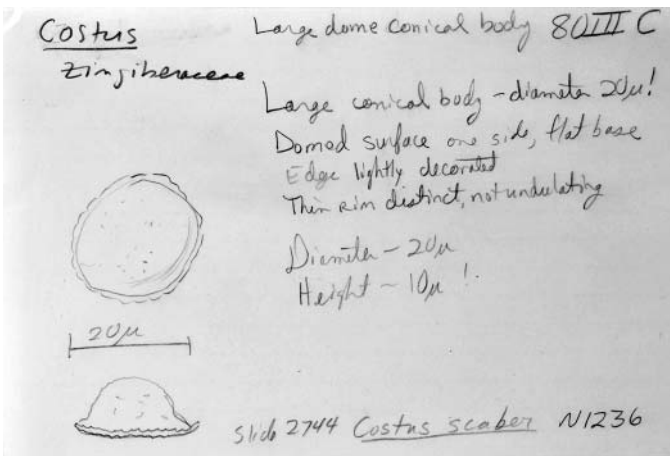 Costus
Zingiberaceae
Large dome conical body 80III C
Large conical body - diameter 20µ!
Domed surface one side, flat base
Edge lightly decorated
Thin rim distinct, not undulating
Diameter - 20µ
Height - 10µ !
20µ
Slide 2744 Costus scaber N1236